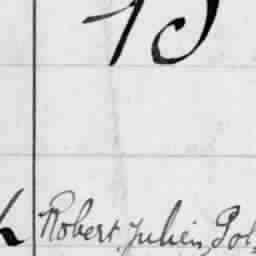 15
Robert Julien Pol